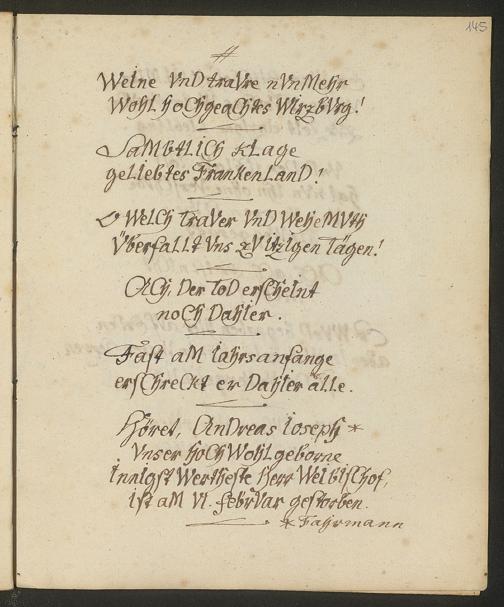 145
#
WeIne VnD traVre nVnMehr
WohL hoChgeaChtes WIrzbVrg!
SaMbtLICh kLage
geLIebtes FrankenLanD!
O WeLCh TraVer VnD WeheMVth
ÜberfaLLt Vns zV itzIgen Tägen!
ACh, Der toD ersCheInt
noCh DahIer.
Fast aM Iahrsanfange
ersChreCkt er DahIer älle.
Höret, AnDreas Ioseph *
Vnser hoChWohLgeborne
InnIgst Wertheste Herr WeIbIsChof,
Ist aM VI. febrVar gestorben.
* Fahrmann